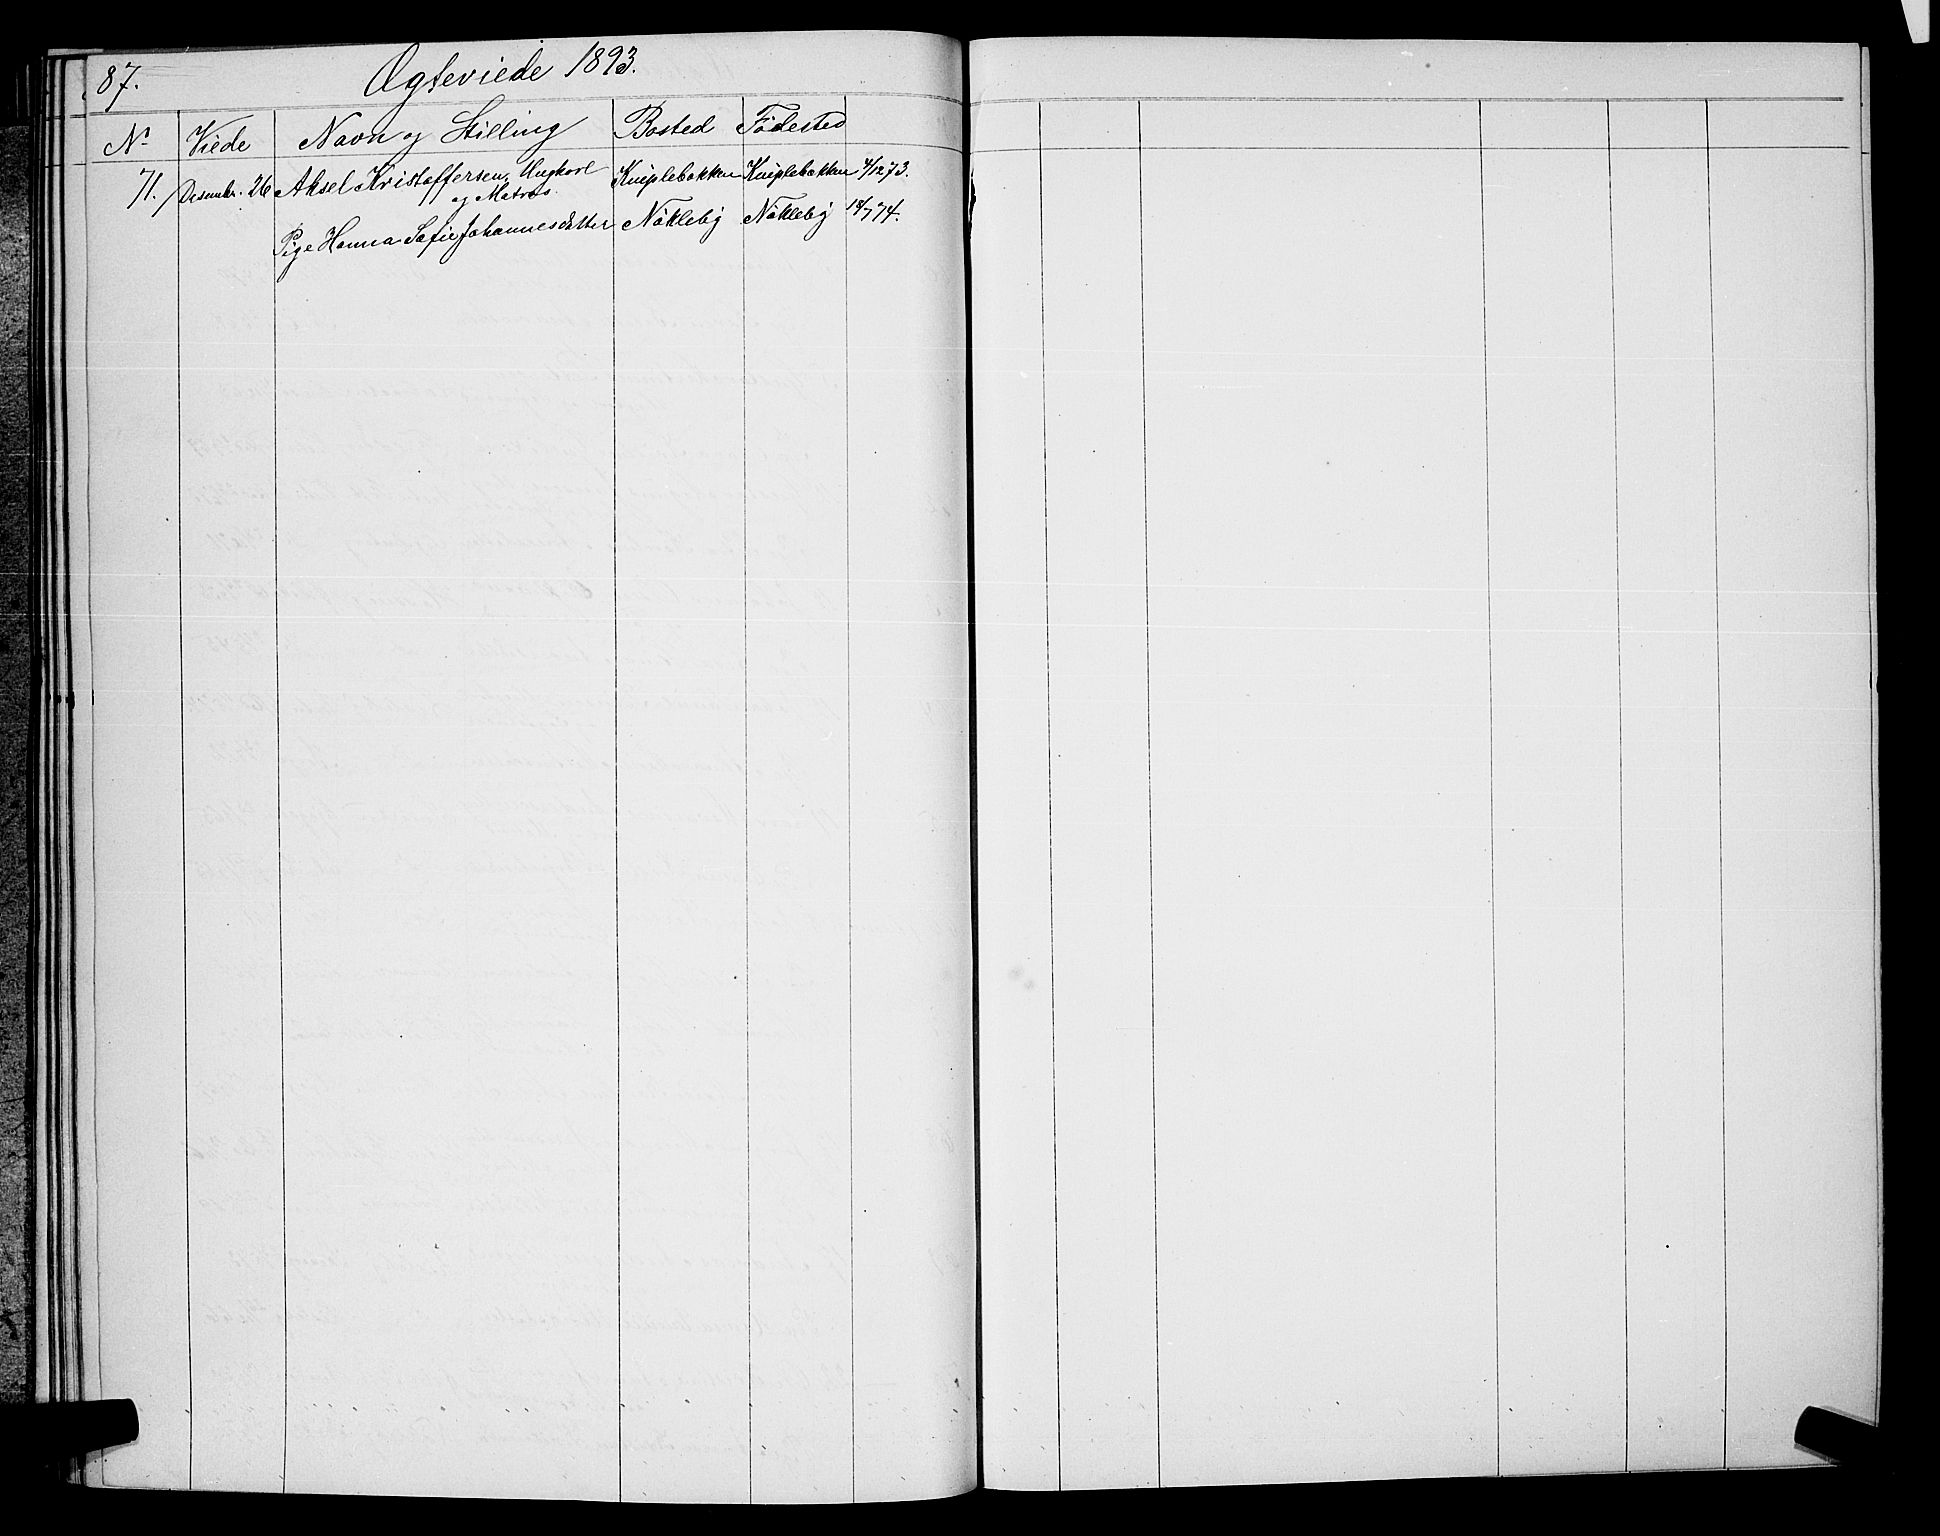 87. Ægteviede 1893.
No Viede Navn og Stilling Bosted Födested
71. Desembr. 26 Aksel Kristoffersen, Ungkarl Kniplebakken Kniplebakken 4/12 73.
og Matros.
Pige Hanna Sofie Johannesdatter Nökleby Nökleby 18/7 74.